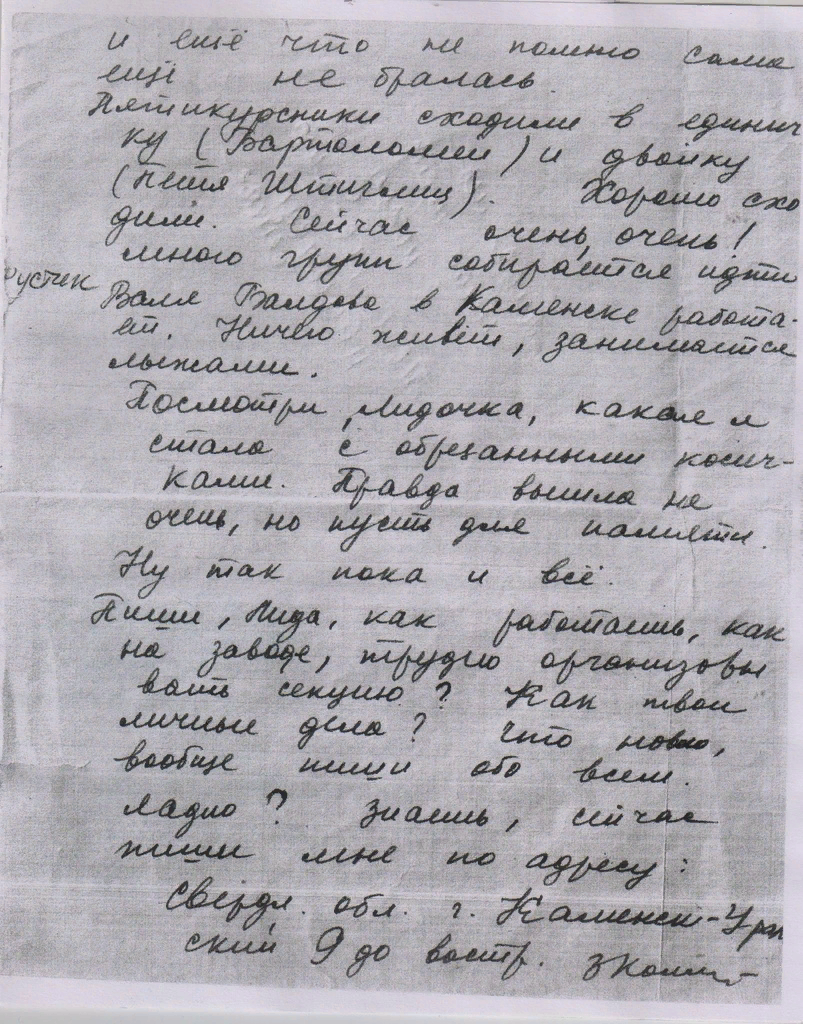 и ещё что не помню сама
ещё не бралась.
Пятикурсники сходили в единич
ку (Бартоломей) и двойку
(Петя Штиглиц). Хорошо схо
дили. Сейчас очень, очень!
много групп собирается идти
Валя Балдова в Каменске работа-
ет. Ничего живёт, занимается
лыжами.
Посмотри, Лидочка, какая я
стала с обрезанными косич-
ками. Правда вышла не
очень, но пусть для памяти.
Ну так пока и всё.
Пиши, Лида, как работаешь, как
на заводе, трудно организовы
вать секцию? Как твои
личные дела? Что ново,
вообще пиши обо всем.
Ладно? Знаешь, сейчас
пиши мне по адресу:
Свердл. обл. г. Каменск-Урал
ский до востр.